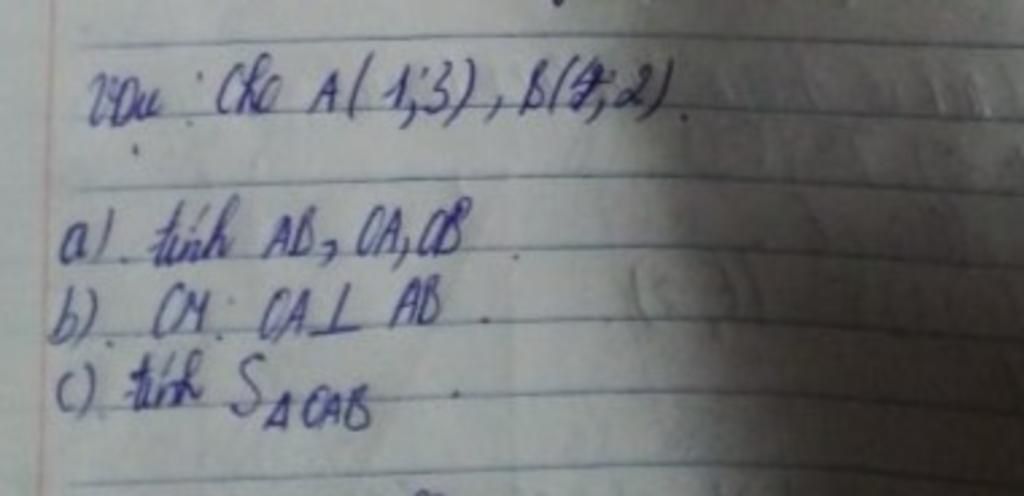 VDu: Cho A(1;3), B(4;2).
a) tính AB, OA, OB
b) CM: OA ⊥ AB.
c) tính S△OAB